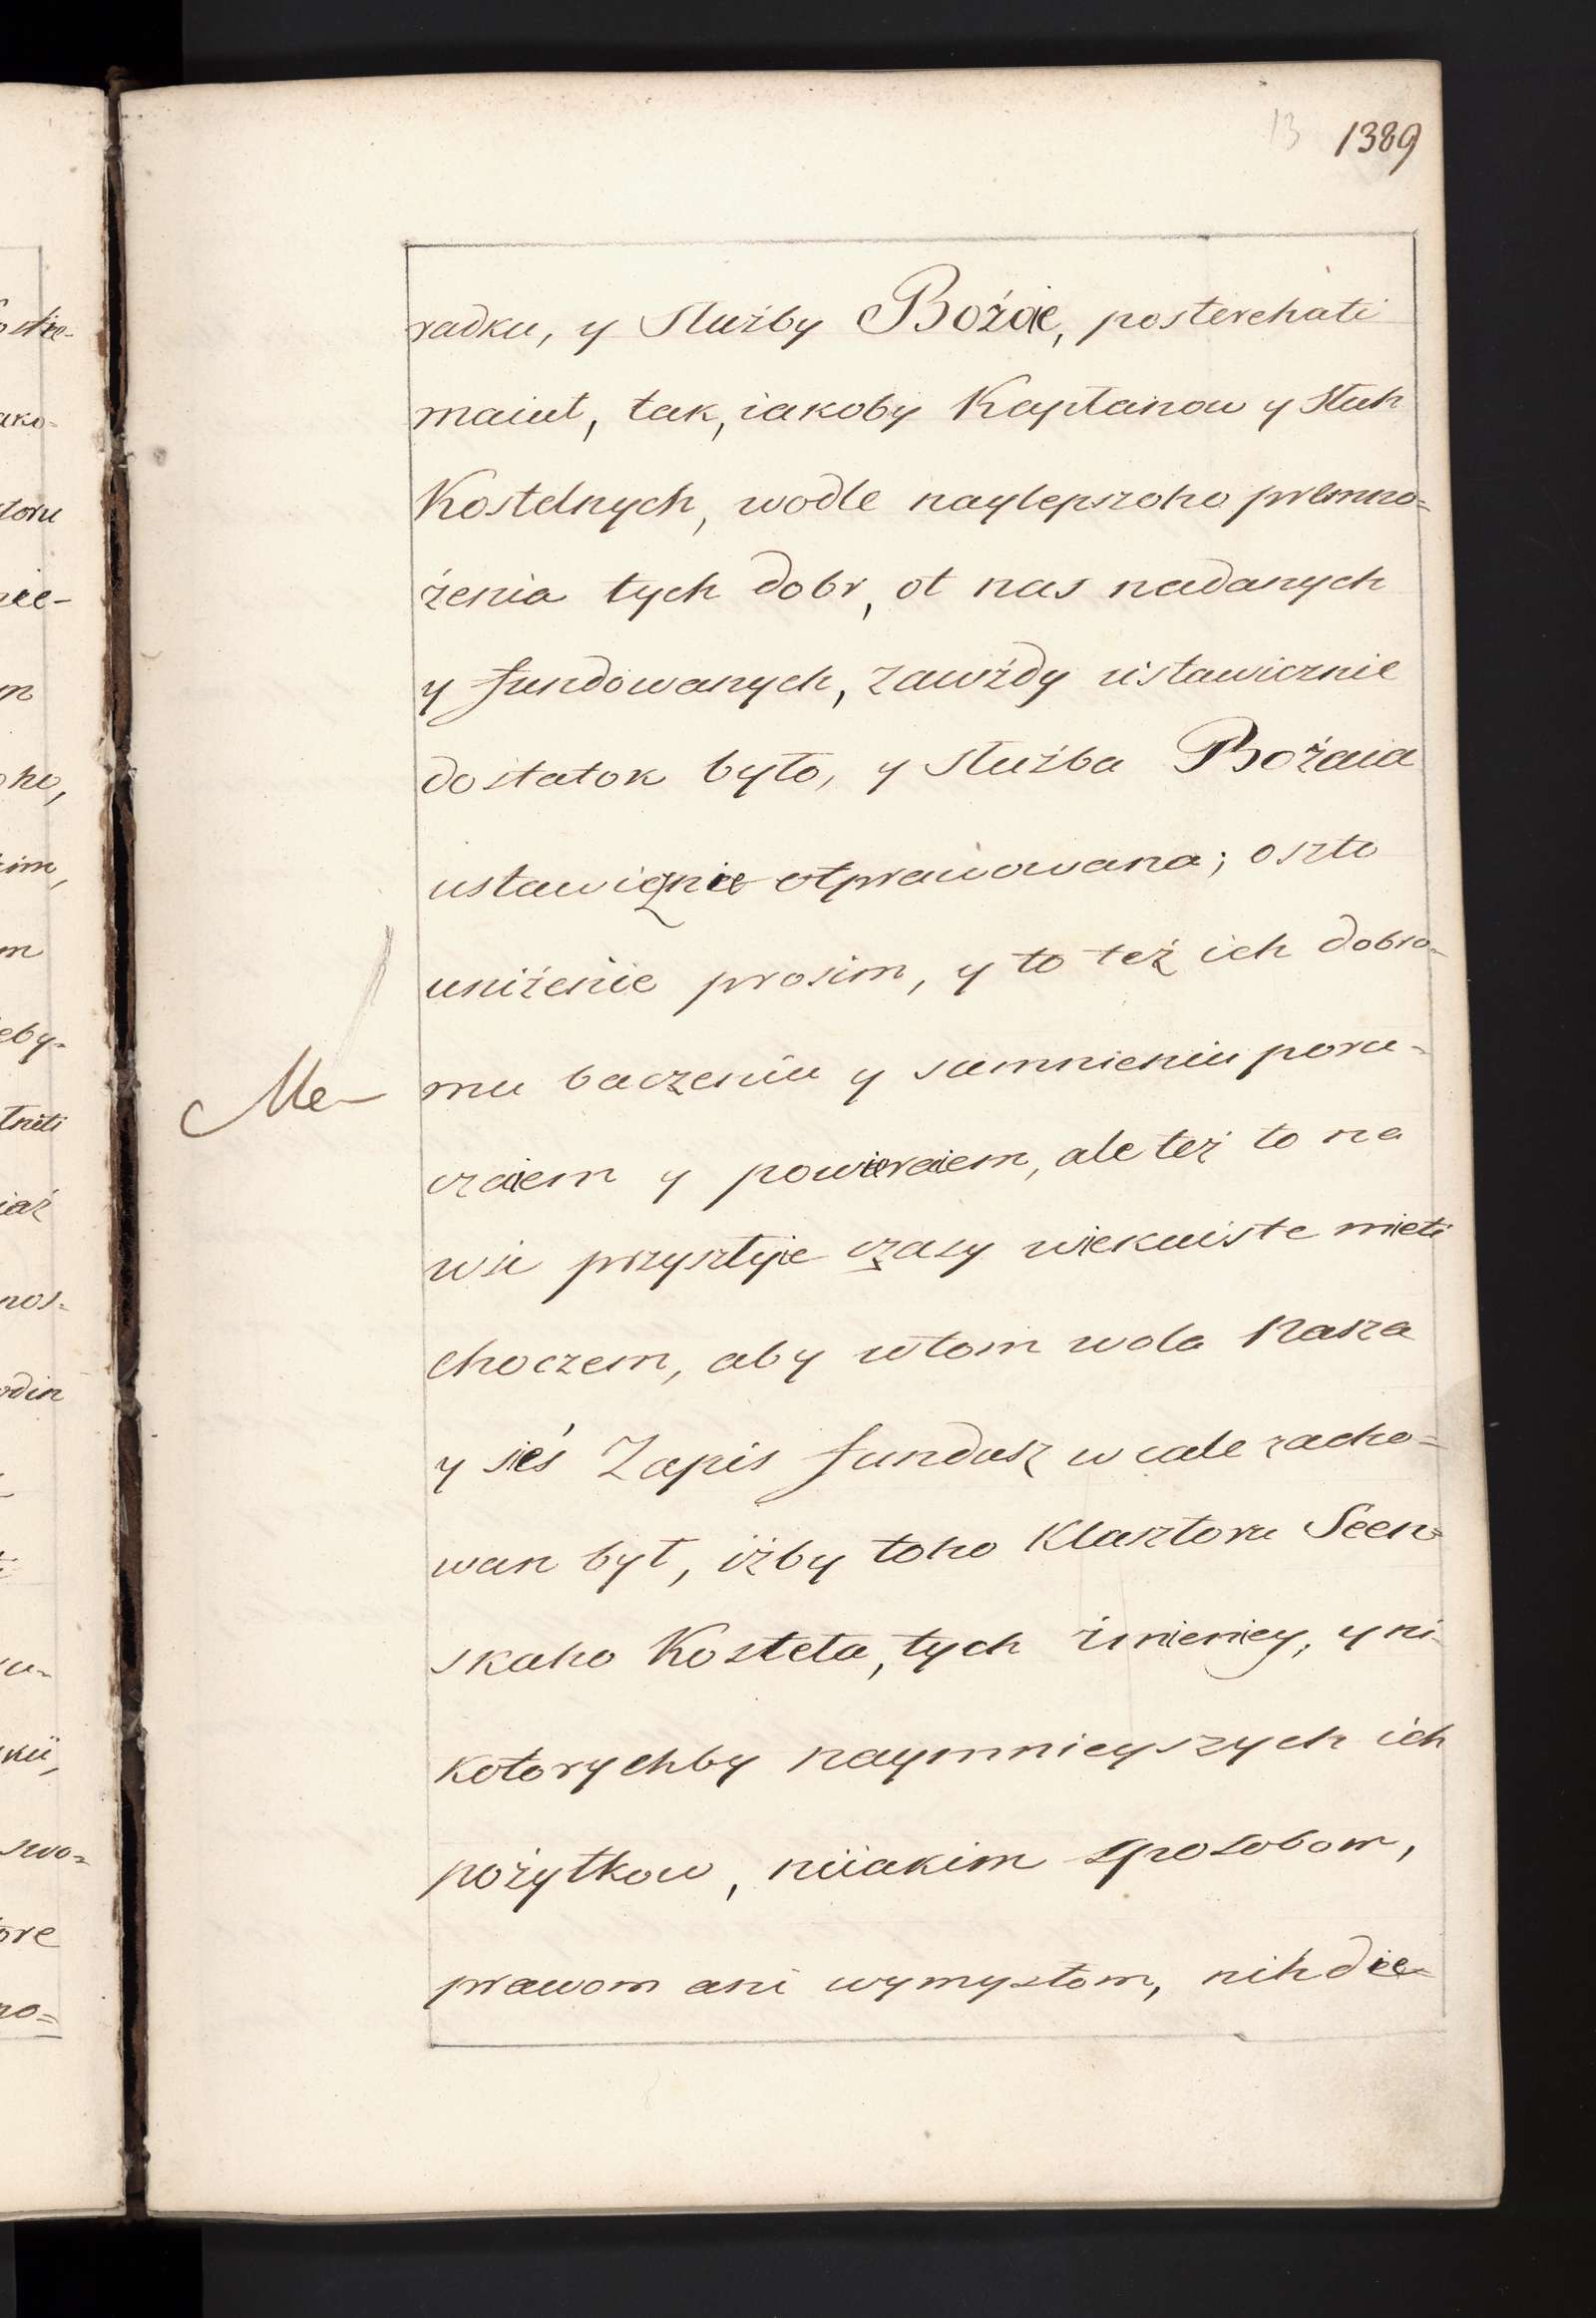 13 1389
radku, y Służby Bożoie, posterehati
maiut, tak, iakoby Kapłanow y Słuh
Kostelnych, wodle naylepszoho premno=
żenia tych dobr, ot nas nadanych
y fundowanych, zawżdy ustawicznie
dostatok było, y Służba Bożaia
ustawicznie otprawowana; oszto
uniżenie prosim, y to też ich dobro-
mu baczeniu y sumnieniu poru-
Me
czaiem y powieraiem, ale też to na
wsi przyszłyie czasy wiekuiste mieti
choczem, aby wtom wola Nasza
y sieś Zapis fundusz w cale zacho=
wan był, iżby toho Klasztoru Seen=
skaho Kosteła, tych imieniey, y ni-
kotorychby naymnieyszych ich
pożytkow, niiakim sposobom,
prawom ani wymysłom, nihdie-
ostre-
ako-
toru
nee-
m
oho,
kim,
m
eby-
łniti
iaż
nos-
odin
kii,
swo=
ore
no=